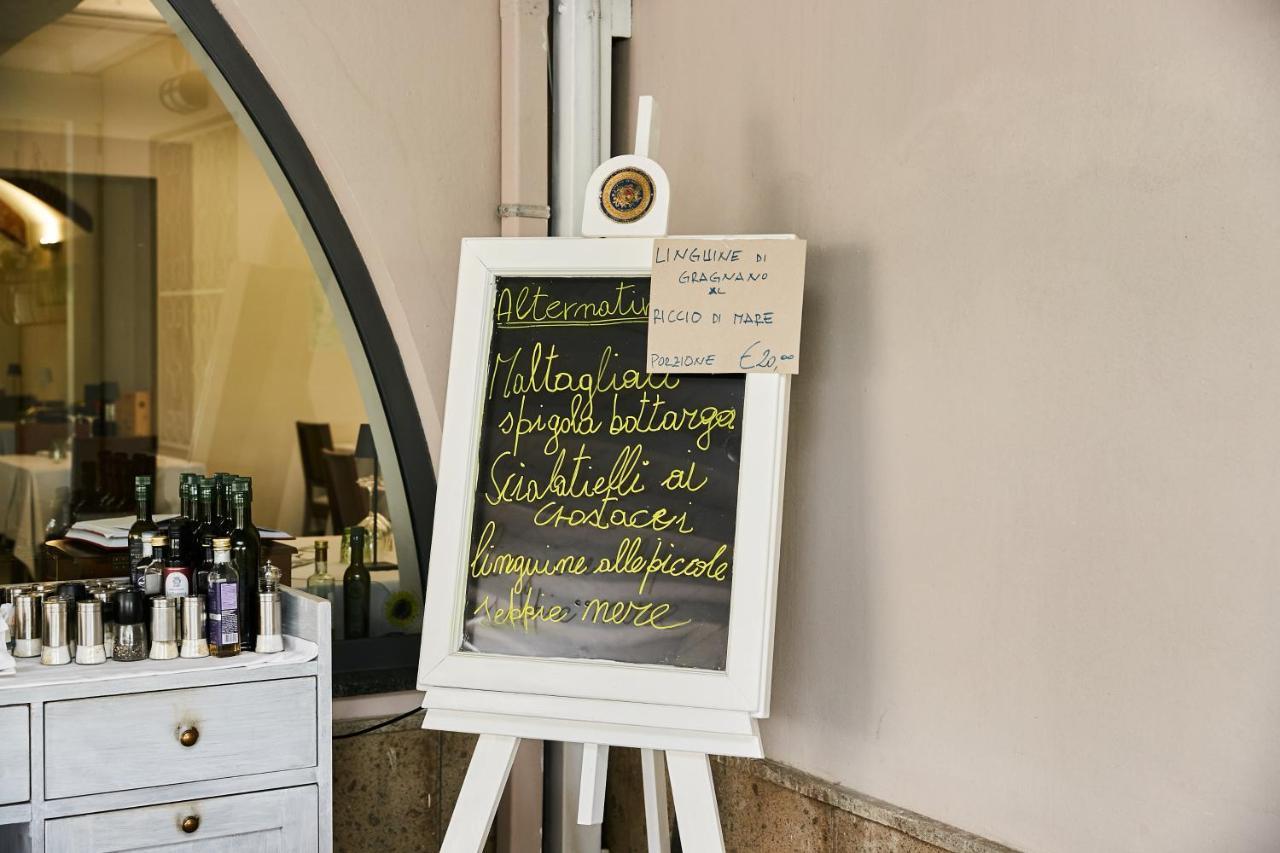 LINGUINE DI
GRAGNANO
AL
RICCIO DI MARE
PORZIONE €20,00
Maltagliati
spigola bottarga
Scialatielli ai
crostacei
linguine alle piccole
seppie nere